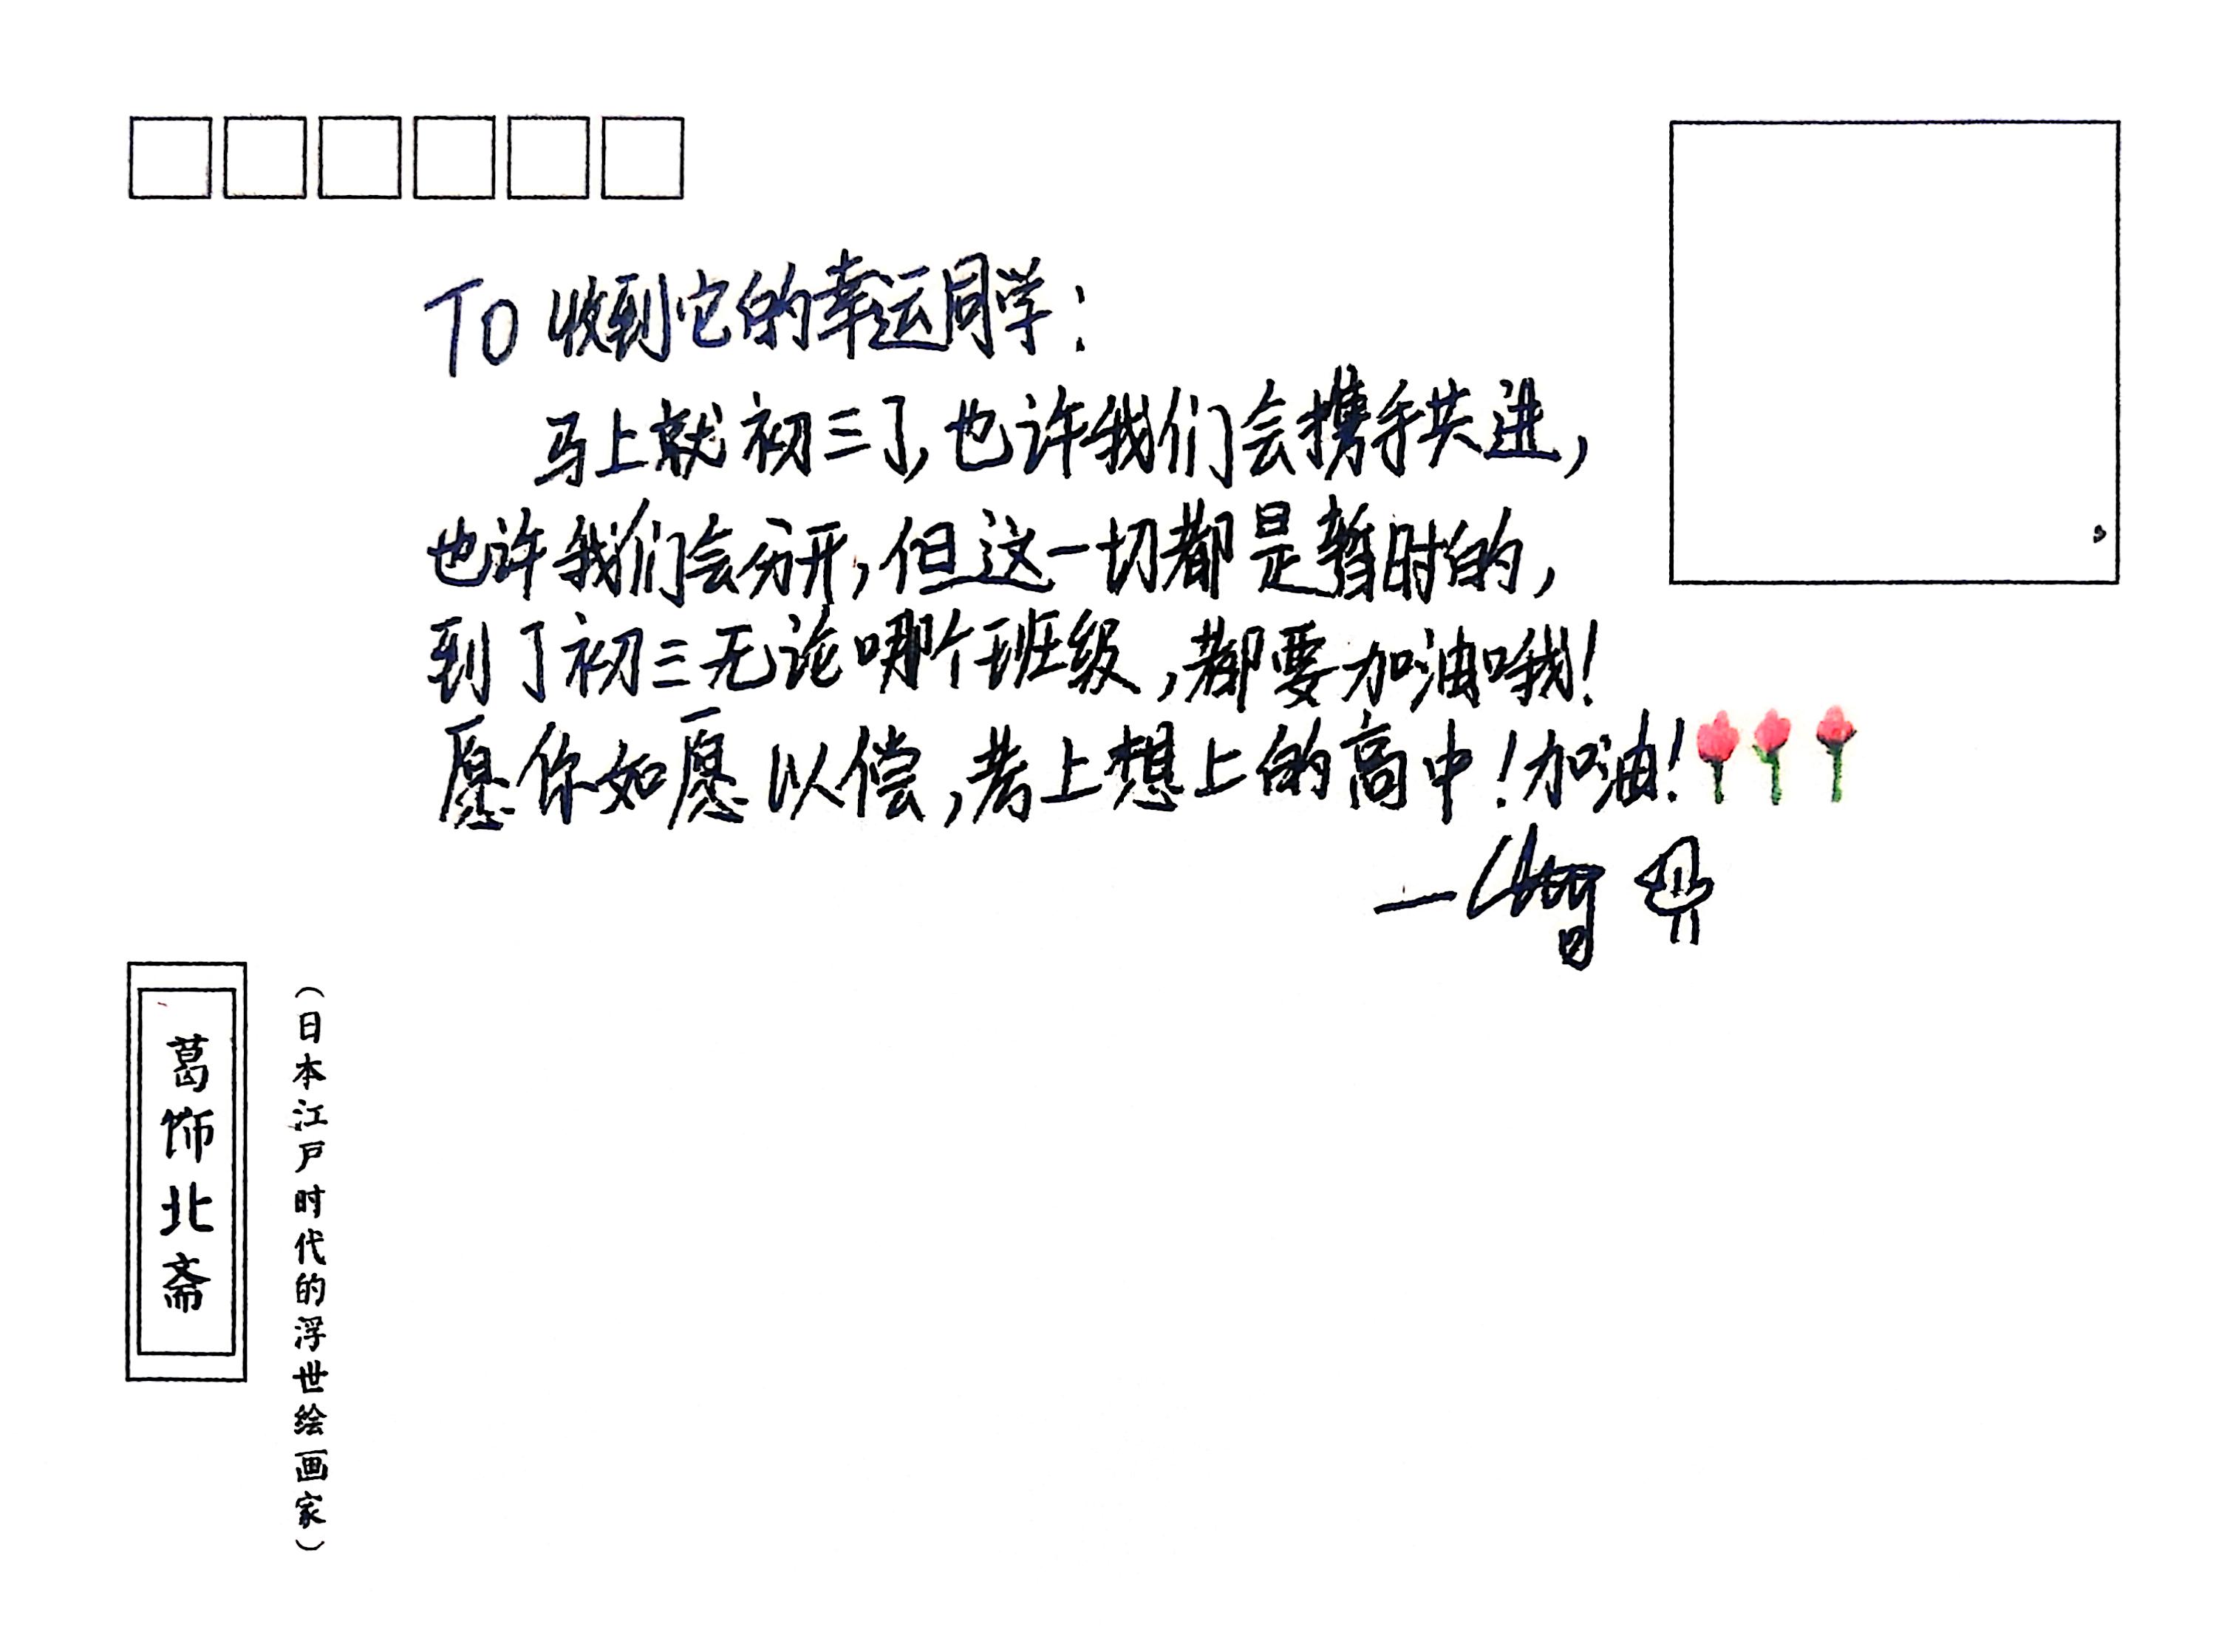 TO 收到它的幸运同学：
马上就初三了，也许我们会携手共进，
也许我们会分开，但这一切都是暂时的，
到了初三无论哪个班级，都要加油哦！
愿你如愿以偿，考上想上的高中！加油！
葛饰北斋
（日本江户时代的浮世绘画家）